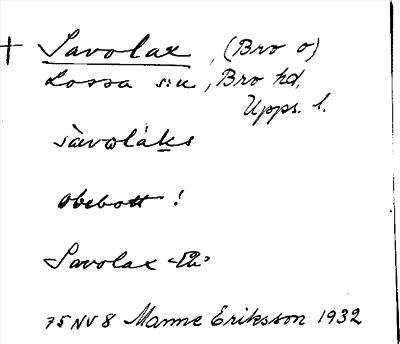 † Savolax, (Bro o)
Lossa sn, Bro hd,
Upps. l.
sàvoláks
obebott!
Savolax
75 NV 8 Manne Eriksson 1932